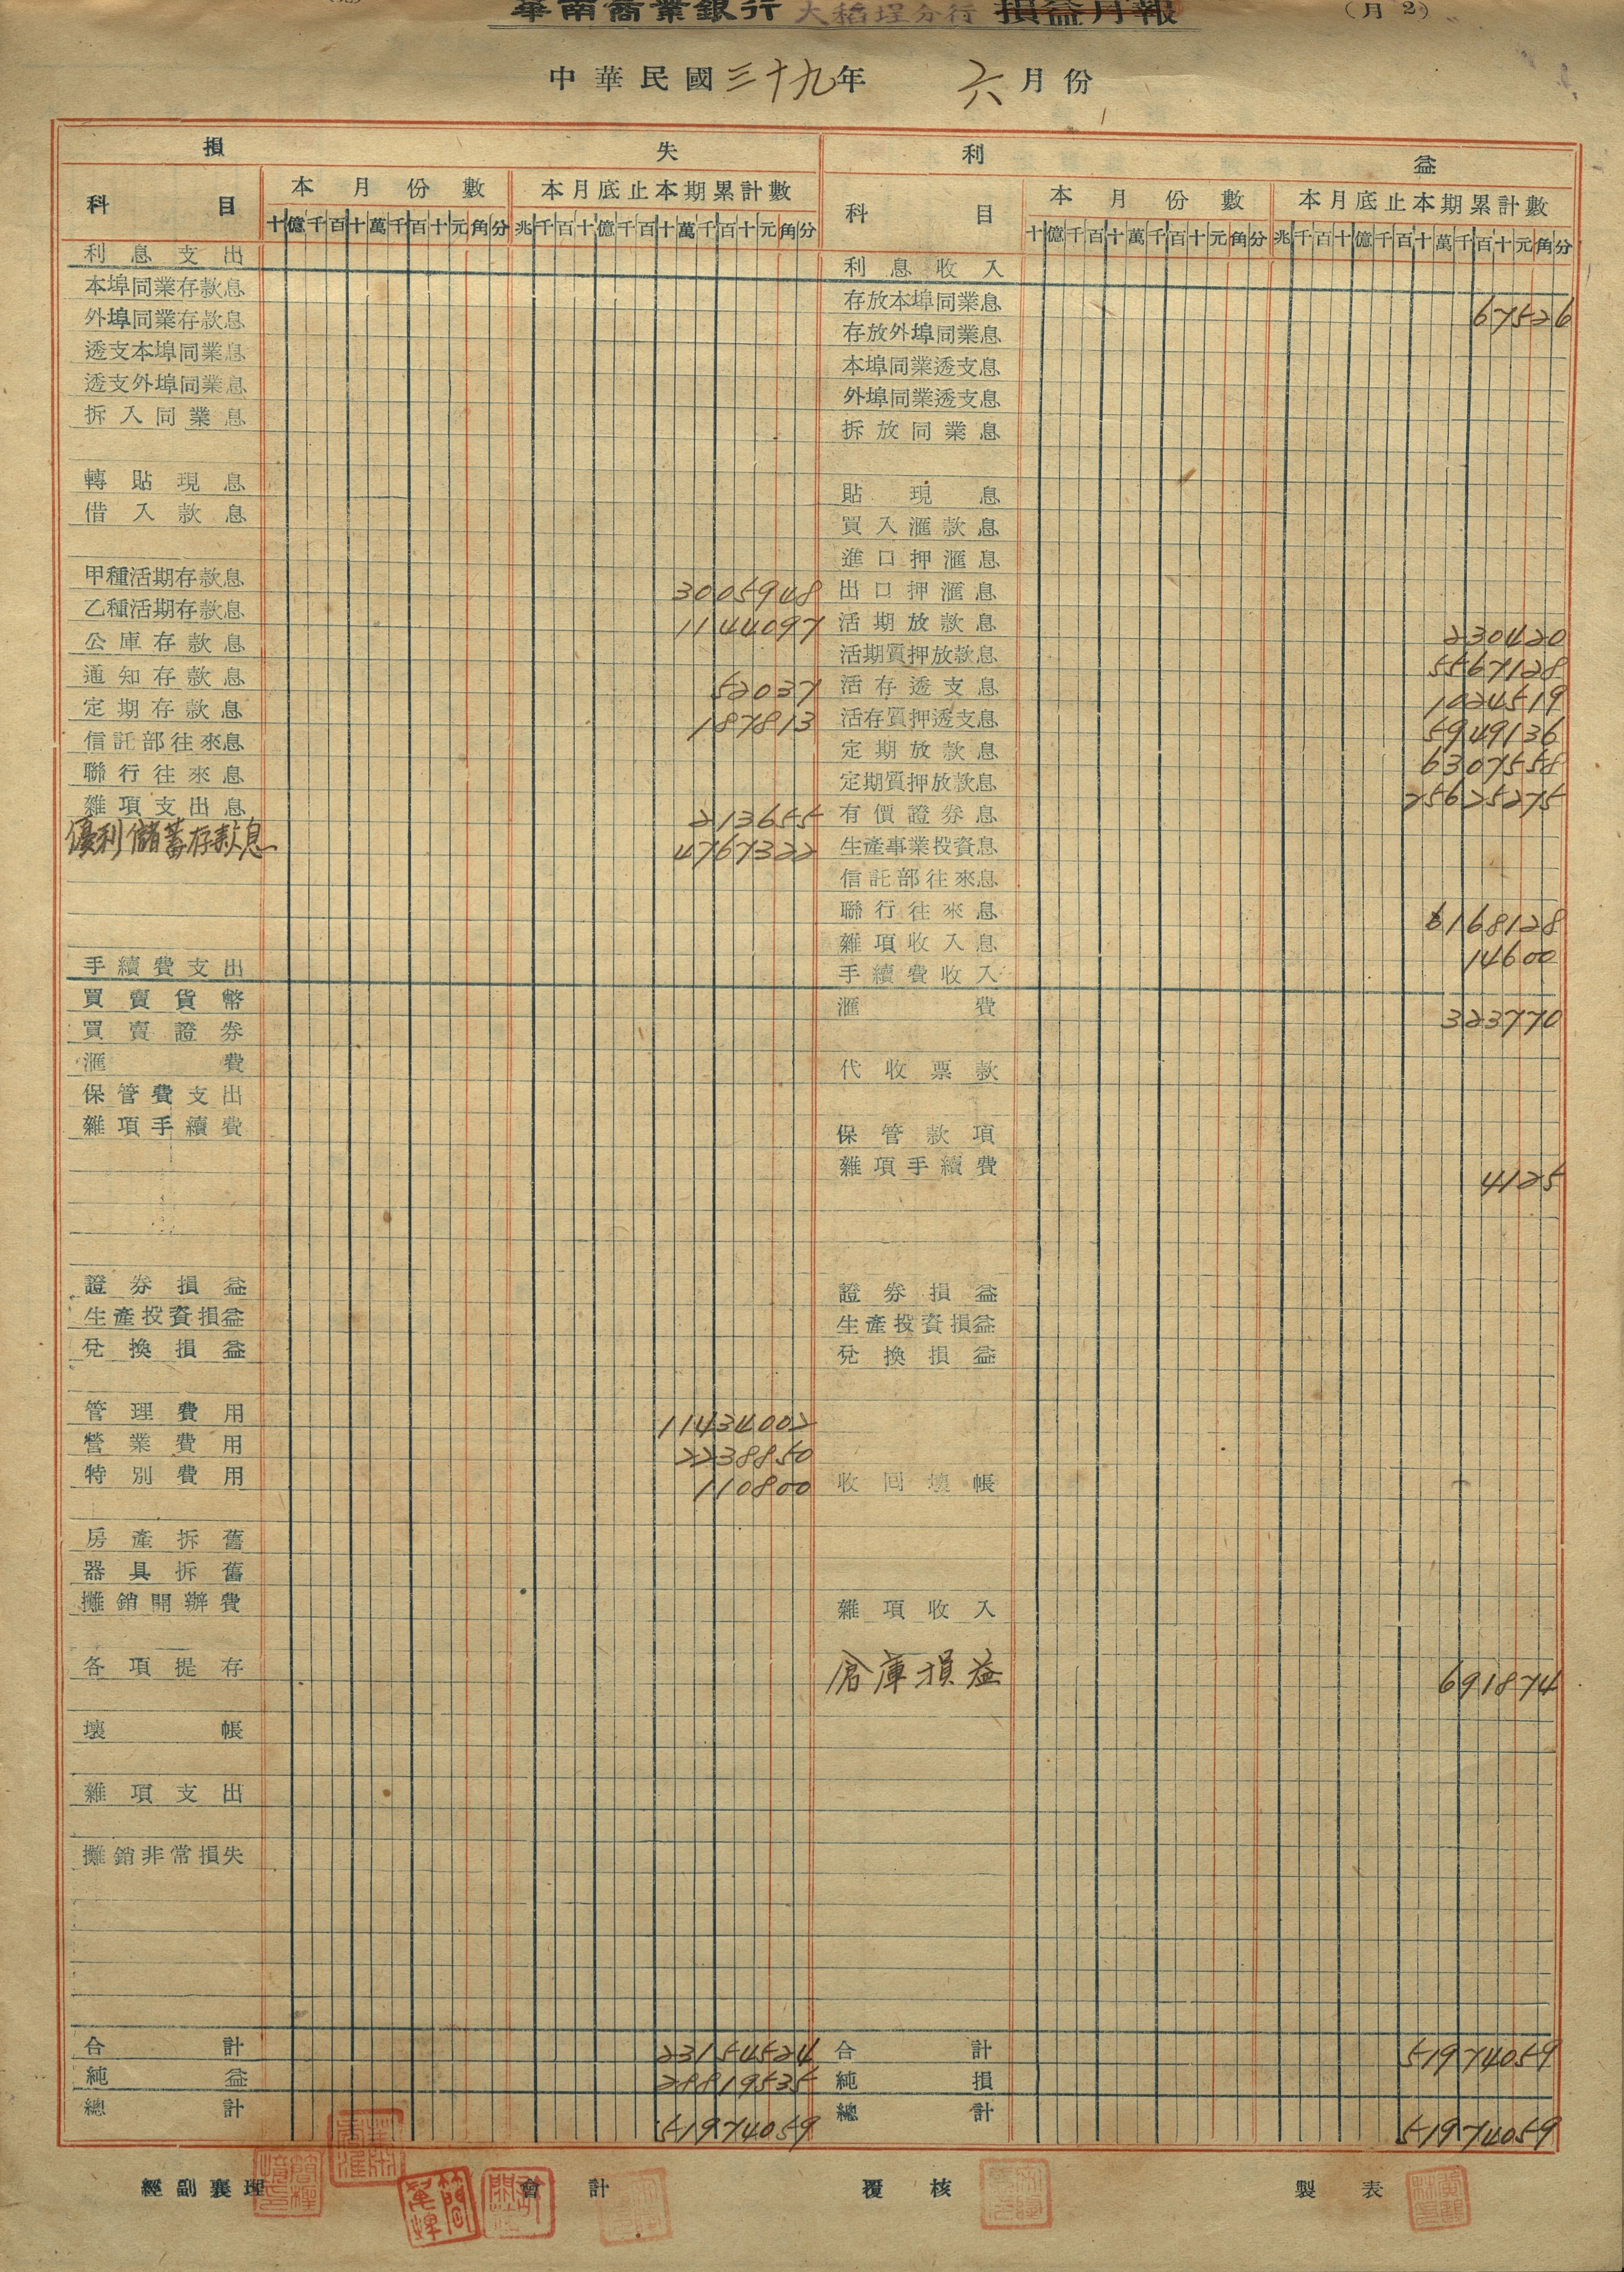 華南商業銀行 大稻埕分行 損益月報 (月 2)
中華民國三十九年 六月份
損 失 利 益
科 目 本月份數 本月底止本期累計數 科 目 本月份數 本月底止本期累計數
十億千百十萬千百十元角分 兆千百十億千百十萬千百十元角分 十億千百十萬千百十元角分 兆千百十億千百十萬千百十元角分
利息支出 利息收入
本埠同業存款息 存放本埠同業息 67526
外埠同業存款息 存放外埠同業息
透支本埠同業息 本埠同業透支息
透支外埠同業息 外埠同業透支息
拆入同業息 拆放同業息
轉貼現息 貼現息
借入款息 買入滙款息
進口押滙息
甲種活期存款息 3005948 出口押滙息
乙種活期存款息 1144097 活期放款息 230420
公庫存款息 活期質押放款息 5567128
通知存款息 52037 活存透支息 1024519
定期存款息 187813 活存質押透支息 5949136
信託部往來息 定期放款息 6307558
聯行往來息 定期質押放款息 25625275
雜項支出息 213655 有價證券息
優利儲蓄存款息 4767322 生產事業投資息
信託部往來息
聯行往來息 6168128
雜項收入息 14600
手續費支出 手續費收入
買賣貨幣 滙費 323770
買賣證券
滙費 代收票款
保管費支出
雜項手續費 保管款項
雜項手續費 4125
證券損益 證券損益
生產投資損益 生產投資損益
兌換損益 兌換損益
管理費用 11434002
營業費用 2238850
特別費用 110800 收回壞帳
房產拆舊
器具拆舊
攤銷開辦費 雜項收入
各項提存 倉庫損益 691874
壞帳
雜項支出
攤銷非常損失
合計 23154524 合計 51974059
純益 28819535 純損
總計 51974059 總計 51974059
經副襄理 會計 覆核 製表